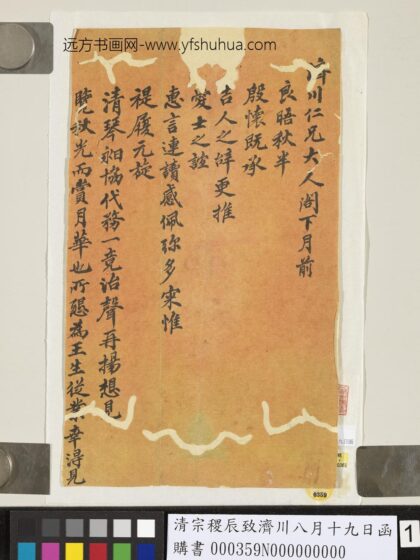 远方书画网-www.yfshuhua.com
濟川仁兄大人閣下月前
良晤秋半
殷懷既承
古人之辞更推
愛士之誼
惠言連讀感佩弥多寀惟
禔履元㝎
清琴㕛協代務一竟治聲再揚想見
曉秋光而賞月華也所懇為王生從業幸得見
0359
清宗稷辰致濟川八月十九日函
購書 000359N000000000
1